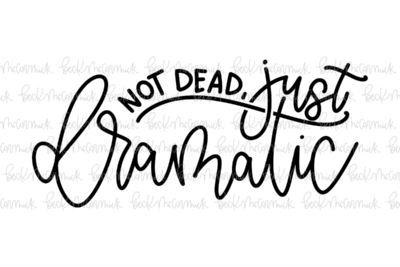 NOT DEAD, just
dramatic